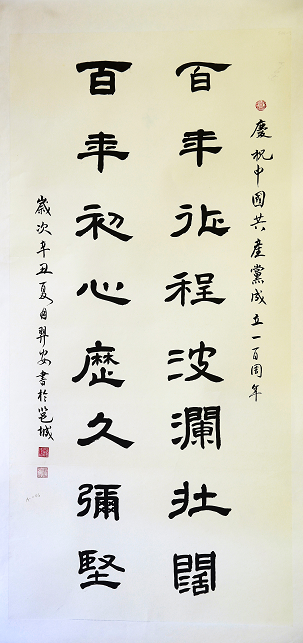 慶祝中國共產黨成立一百周年
百年征程波瀾壯闊
百年初心歷久彌堅
歲次辛丑夏日羿安書於邕城